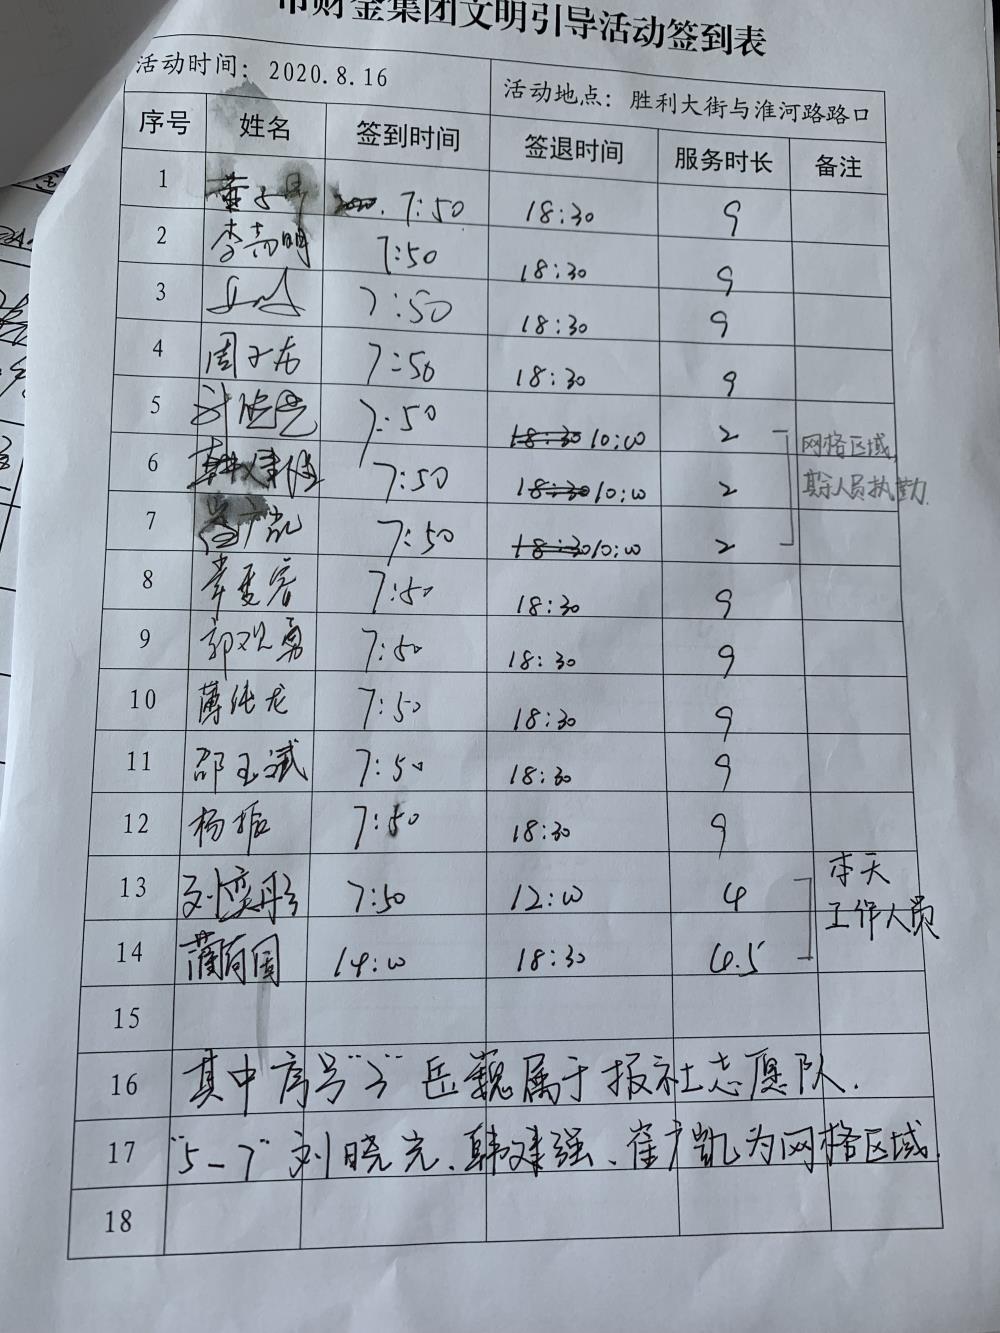 市财金集团文明引导活动签到表
活动时间：2020.8.16 活动地点：胜利大街与淮河路路口
序号 姓名 签到时间 签退时间 服务时长 备注
1 7:50 18:30 9
2 7:50 18:30 9
3 7:50 18:30 9
4 7:50 18:30 9
5 刘晓光 7:50 18:30 10:00 2 网格区域,
6 韩建强 7:50 18:30 10:00 2 其余人员执勤.
7 崔广凯 7:50 18:30 10:00 2
8 7:50 18:30 9
9 郭观勇 7:50 18:30 9
10 薄纯龙 7:50 18:30 9
11 邵玉斌 7:50 18:30 9
12 杨振 7:50 18:30 9
13 刘奕彤 7:50 12:00 4 本天
14 14:00 18:30 4.5 工作人员
15
16 其中序号"3"岳巍属于报社志愿队.
17 "5-7"刘晓光、韩建强、崔广凯为网格区域.
18